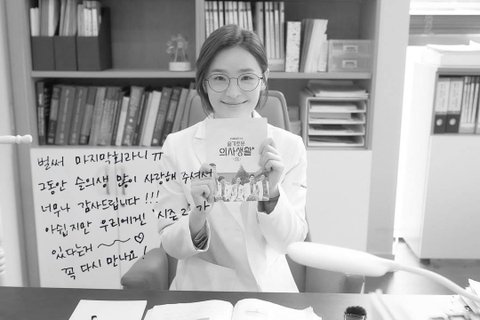 벌써 마지막회라니 ㅠ
그동안 슬의생 많이 사랑해 주셔서
너무나 감사드립니다 !!!
아쉽지만 우리에겐 '시즌 2' 가
있다는거 ~~ ♡
꼭 다시 만나요 !
슬기로운
의사생활